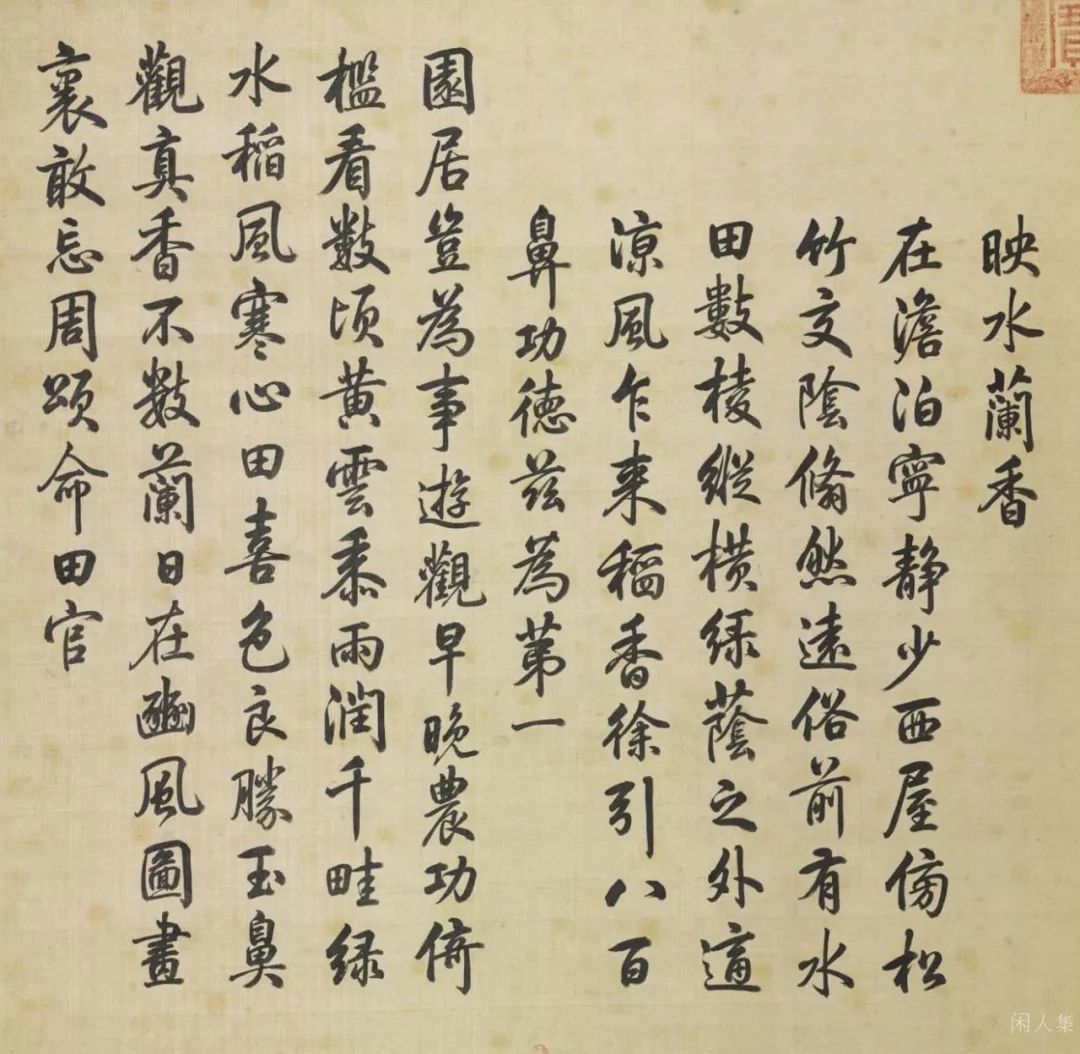 映水蘭香
在澹泊寧静少西屋傍松
竹交陰翛然遠俗前有水
田數棱縱横緑蔭之外適
涼風乍来稻香徐引八百
鼻功徳兹為第一
園居豈為事遊觀早晚農功倚
檻看數頃黄雲黍雨潤千畦緑
水稻風寒心田喜色良勝玉鼻
觀真香不數蘭日在豳風圖畫
裏敢忘周頌命田官
闲人集